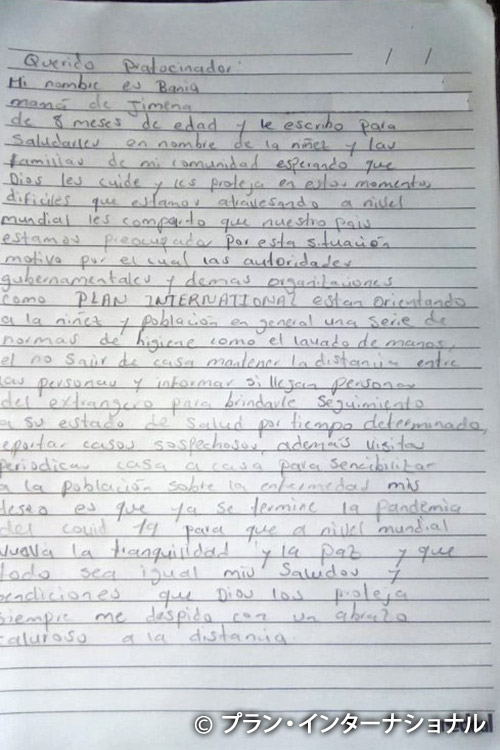 / /
Querido Pratocinador:
Mi nombre es Bania
mamá de Jimena
de 8 meses de edad y le escribo para
Saludarles en nombre de la niñez y las
familias de mi comunidad esperando que
Dios les cuide y les proteja en estos momentos
dificiles que estamos atravesando a nivel
mundial les comparto que nuestro pais
estamos preocupados por esta situación
motivo por el cual las autoridades
gubernamentales y demas organizaciones
como PLAN INTERNATIONAL estan orientando
a la niñez y población en general una serie de
normas de higiene como el lavado de manos,
el no salir de casa mantener la distancia entre
las personas y informar si llegan personas
del extrangero para brindarle seguimiento
a su estado de salud por tiempo determinado,
reportar casos sospechosos, además visitas
periodicas casa a casa para sencibilitar
a la población sobre la enfermedad mis
deseo es que ya se termine la pandemia
del covid 19 para que a nivel mundial
vuelva la tranquilidad y la paz y que
todo sea igual mis Saludos y
bendiciones que Dios los proteja
siempre me despido con un abrazo
caluroso a la distancia.
© プラン・インターナショナル